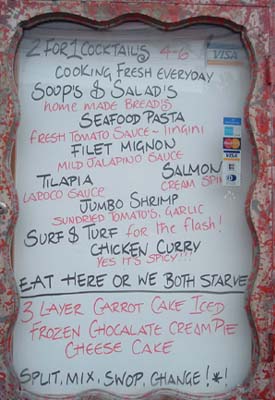 2 FOR 1 COCKTAILS 4-6
VISA
COOKING FRESH EVERYDAY
SOUP'S & SALAD'S
HOME MADE BREAD'S
SEAFOOD PASTA
FRESH TOMATO SAUCE ~ lingini
FILET MIGNON
MILD JALAPINO SAUCE
VISA
TILAPIA
SALMON
LAROCO SAUCE
CREAM SPIN
JUMBO SHRIMP
SUNDRIED TOMATO'S, GARLIC
SURF & TURF for the flash!
CHICKEN CURRY
YES IT'S SPICY!!!
EAT HERE OR WE BOTH STARVE
3 LAYER CARROT CAKE ICED
FROZEN CHOCALATE CREAM PIE
CHEESE CAKE
SPLIT, MIX, SWOP, CHANGE!*!